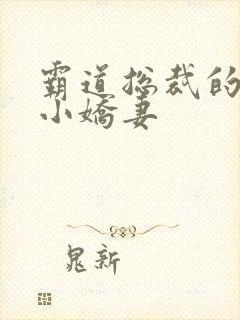 霸道总裁的
小娇妻
晁新